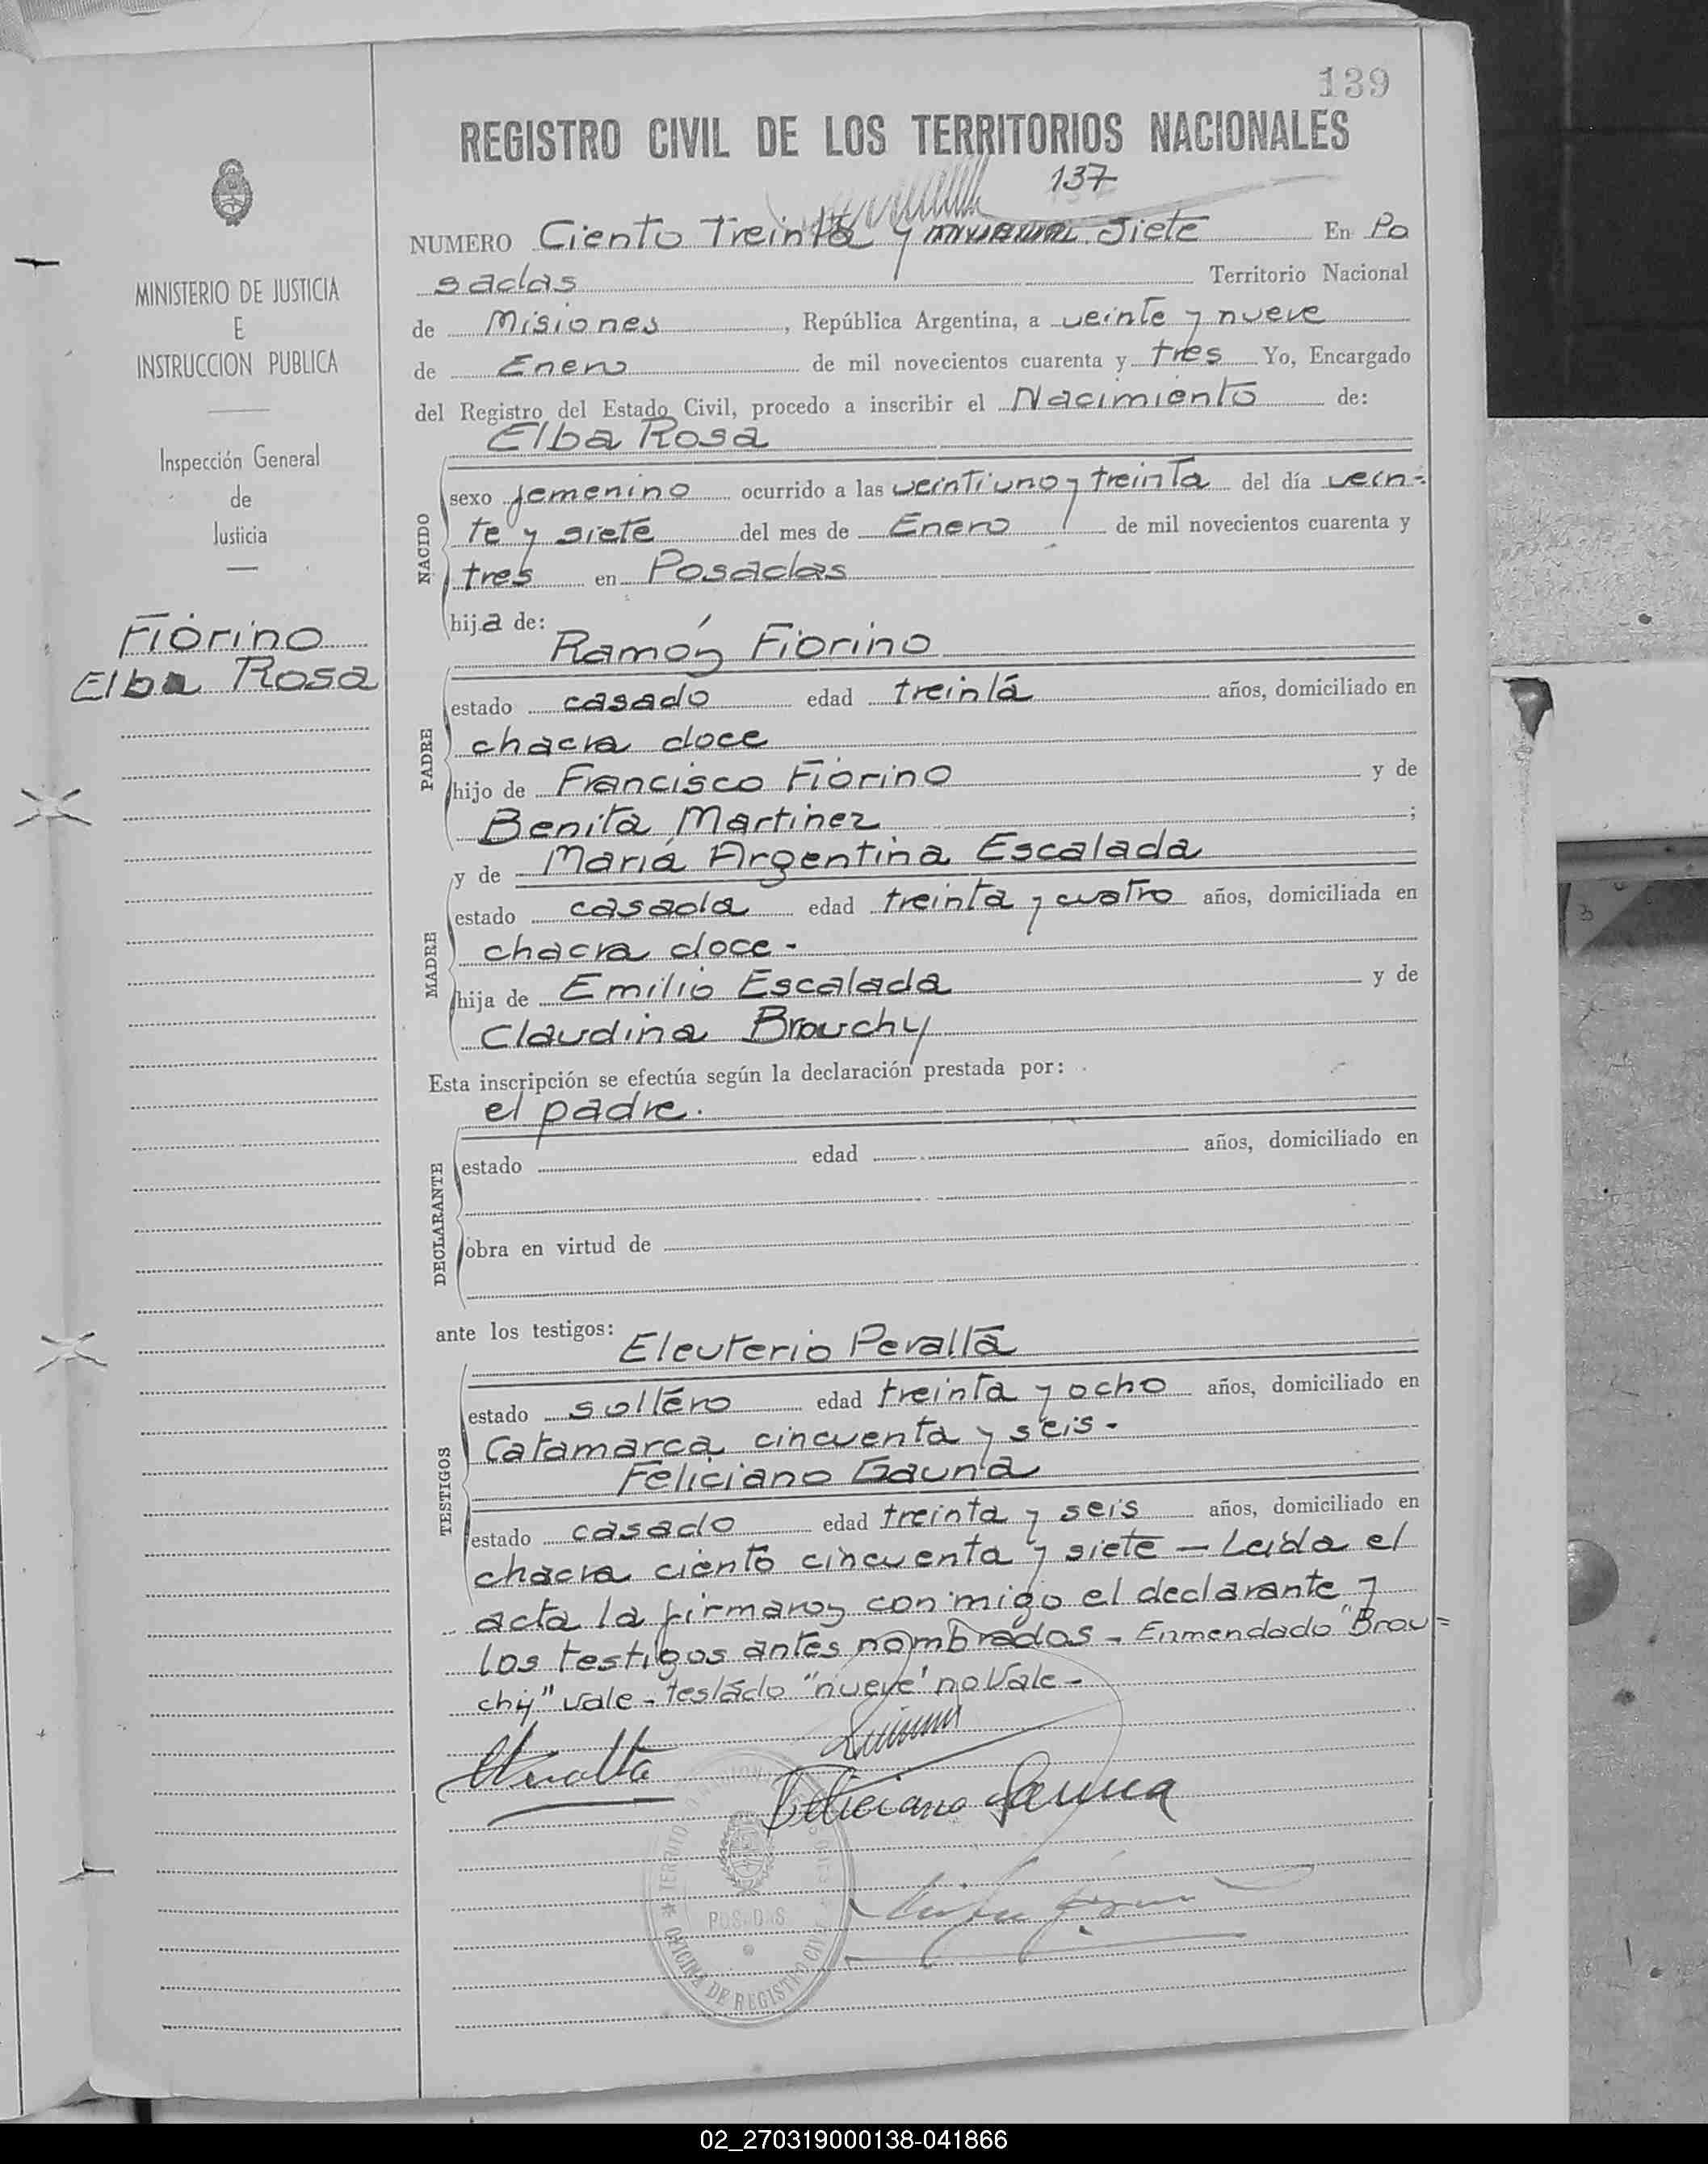 139
REGISTRO CIVIL DE LOS TERRITORIOS NACIONALES
137
NUMERO Ciento Treinta y nueve Siete En Po
sadas Territorio Nacional
de Misiones, República Argentina, a veinte y nueve
de Enero de mil novecientos cuarenta y tres Yo, Encargado
del Registro del Estado Civil, procedo a inscribir el Nacimiento de:
Elba Rosa
NACIDO
sexo femenino ocurrido a las veintiuno y treinta del día vein=
te y siete del mes de Enero de mil novecientos cuarenta y
tres en Posadas
hija de:
Ramón Fiorino
PADRE
estado casado edad treinta años, domiciliado en
chacra doce
hijo de Francisco Fiorino y de
Benita Martinez ;
y de Maria Argentina Escalada
MADRE
estado casada edad treinta y cuatro años, domiciliada en
chacra doce-
hija de Emilio Escalada y de
Claudina Brouchy
Esta inscripción se efectúa según la declaración prestada por:
el padre.
DECLARANTE
estado edad años, domiciliado en
obra en virtud de
ante los testigos:
Eleuterio Peralta
TESTIGOS
estado soltero edad treinta y ocho años, domiciliado en
Catamarca cincuenta y seis-
Feliciano Gauna
estado casado edad treinta y seis años, domiciliado en
chacra ciento cincuenta y siete - Leida el
acta la firmaron conmigo el declarante y
los testigos antes nombrados - Enmendado "Brou=
chy" vale - testado "nueve" no Vale-
EPeralta
Feliciano Gauna
TERRITORIO NACIONAL
POSADAS
OFICINA DE REGISTRO CIVIL
MINISTERIO DE JUSTICIA
E
INSTRUCCION PUBLICA
Inspección General
de
Justicia
Fiorino
Elba Rosa
02_270319000138-041866